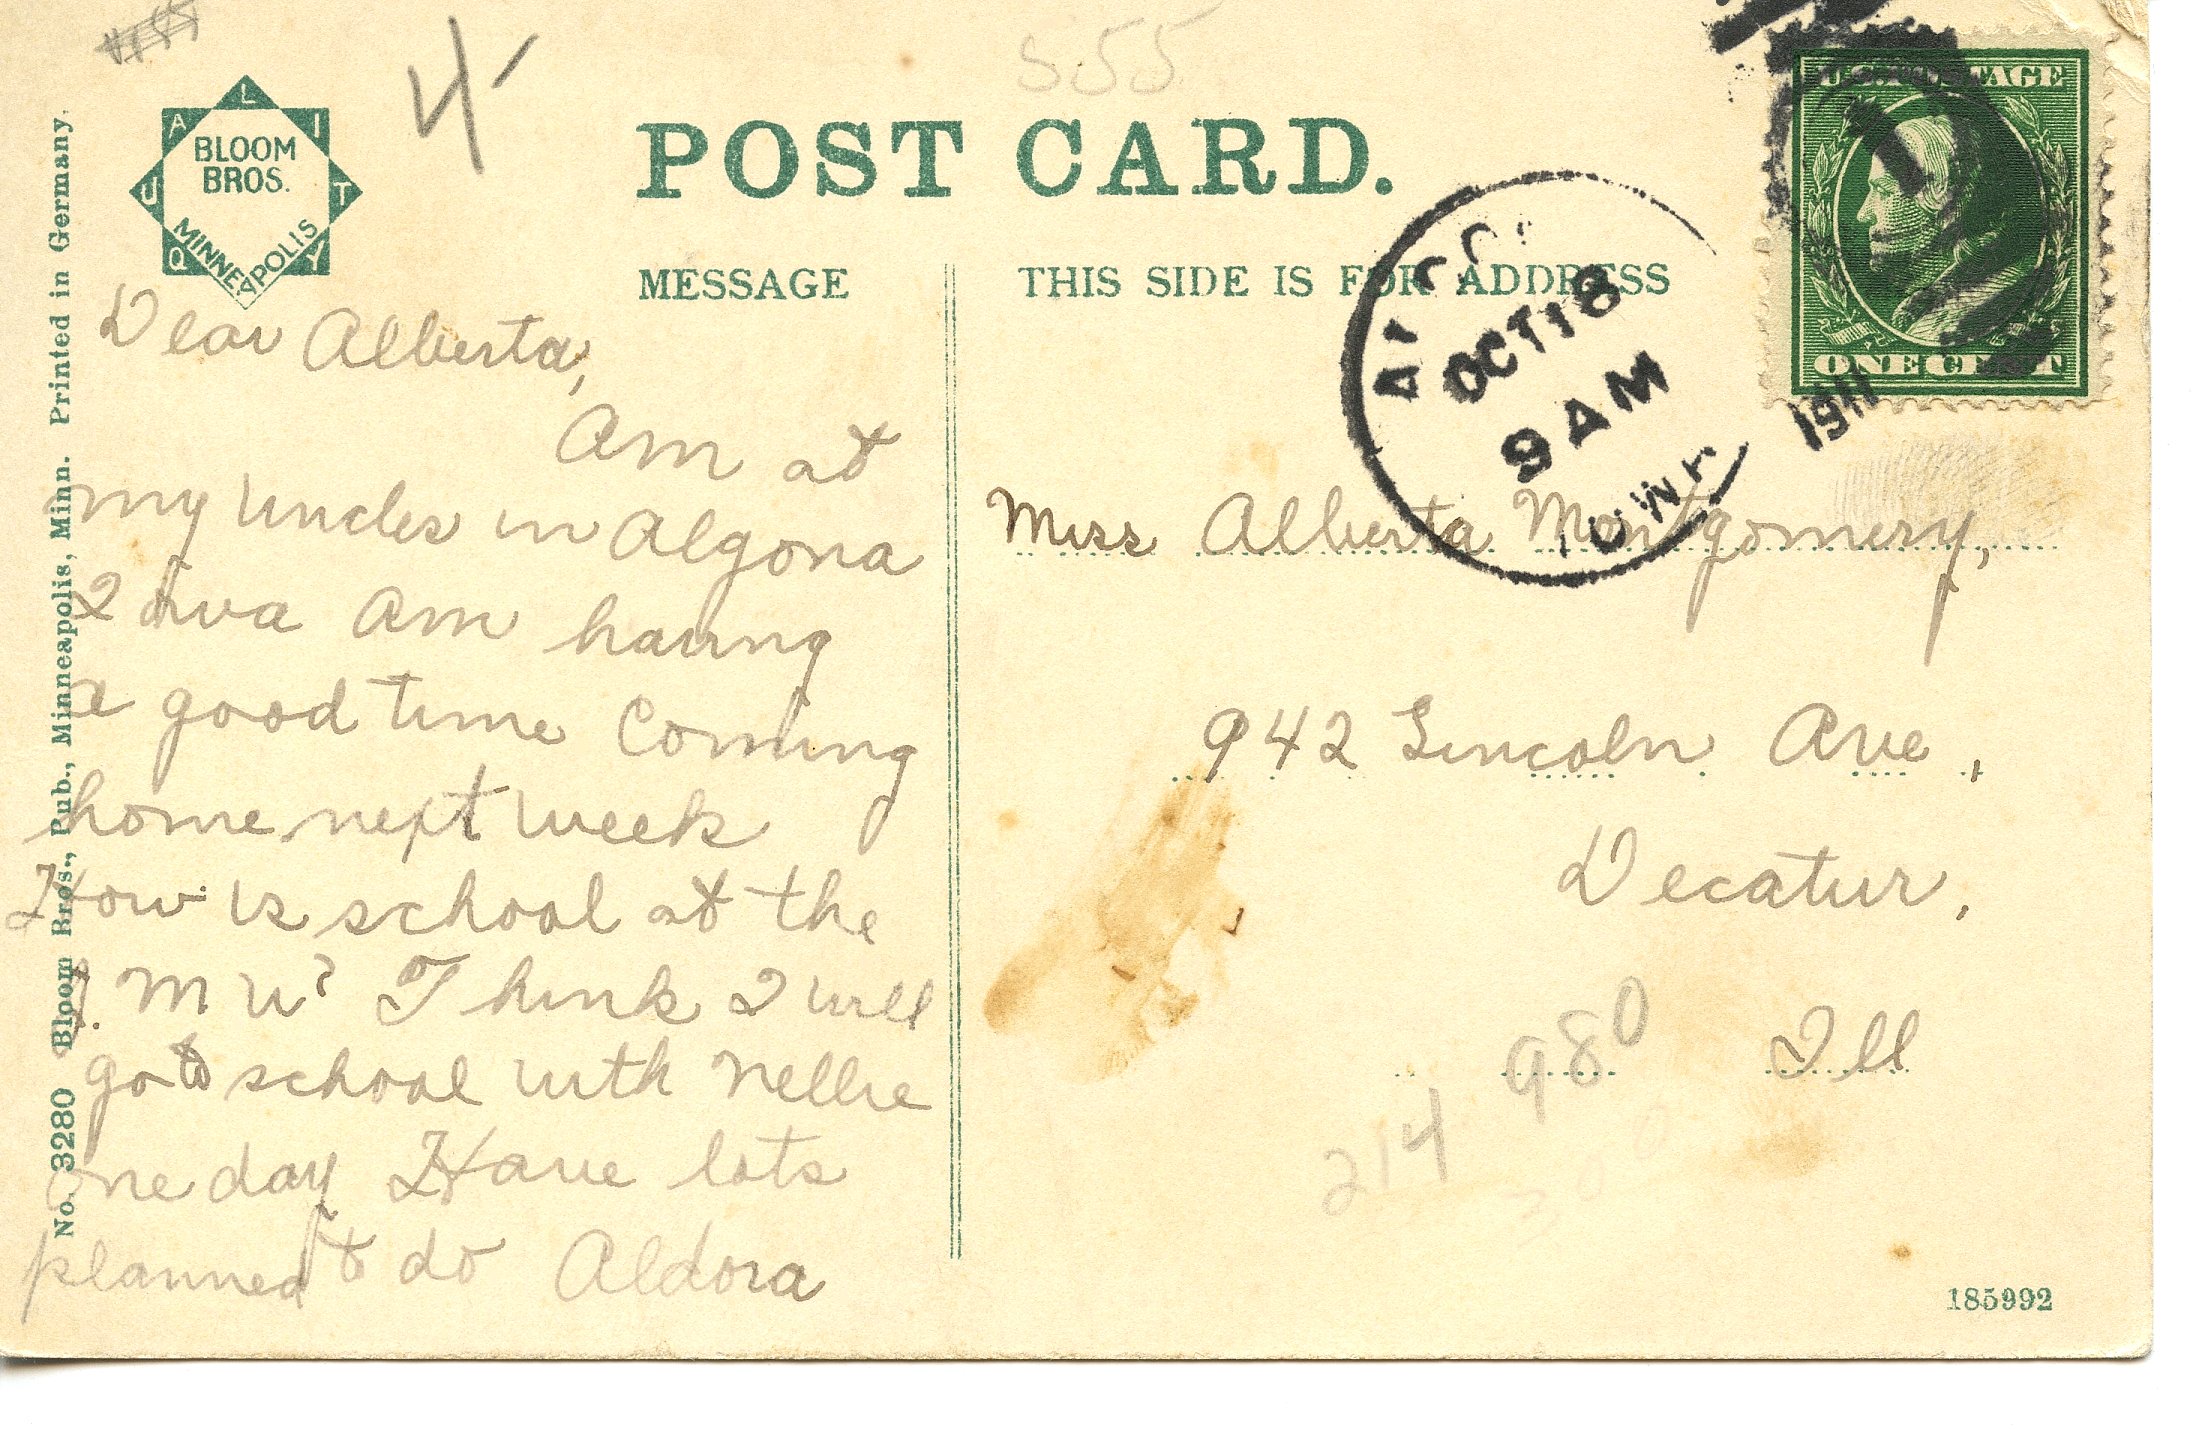 555
4
QUALITY
BLOOM
BROS.
MINNEAPOLIS
POST CARD.
MESSAGE
THIS SIDE IS FOR ADDRESS
U.S. POSTAGE
ONE CENT
OCT 18
9 AM
1911
IOWA
No. 3280 Bloom Bros., Pub., Minneapolis, Minn. Printed in Germany.
Dear Alberta,
Am at
my Uncles in Algona
Iowa Am having
a good time Coming
home next week
How is school at the
J. M U? Think I will
go to school with Nellie
one day Have lots
planned to do Aldora
Miss Alberta Montgomery,
942 Lincoln Ave,
Decatur,
Ill
980
214
185992